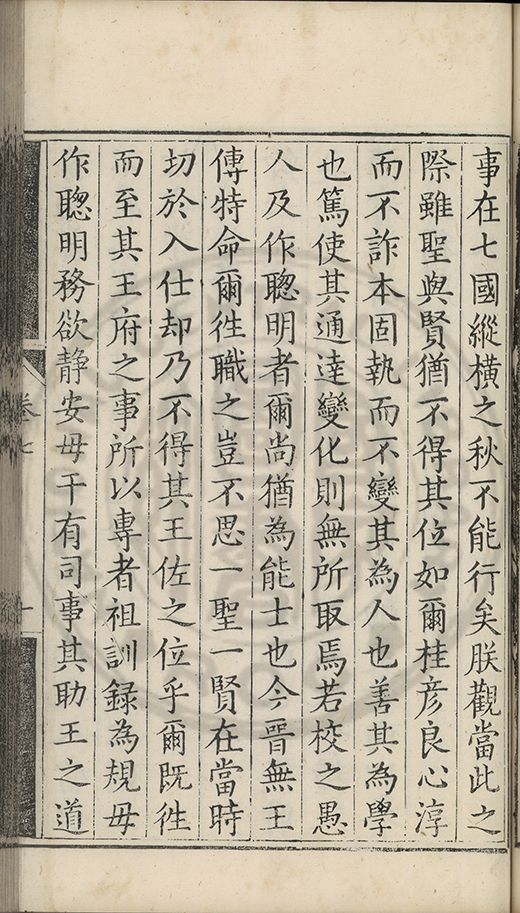 事在七國縱橫之秋不能行矣朕觀當此之
際雖聖與賢猶不得其位如爾桂彥良心淳
而不詐本固執而不變其為人也善其為學
也篤使其通達變化則無所取焉若校之愚
人及作聰明者爾尚猶為能士也今晉無王
傅特命爾徃職之豈不思一聖一賢在當時
切於入仕却乃不得其王佐之位乎爾既徃
而至其王府之事所以專者祖訓録為規毋
作聰明務欲静安毋干有司事其助王之道
卷七